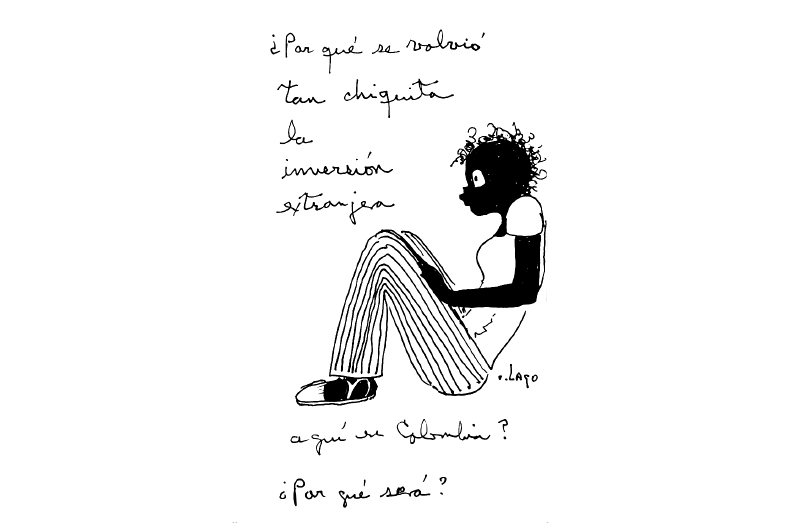 ¿Por qué se volvió
tan chiquita
la
inversión
extranjera
.. Lago
aquí en Colombia?
¿Por qué será?